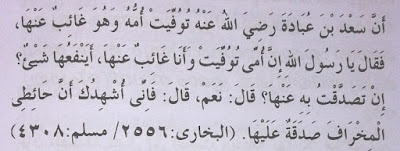 أَنَّ سَعْدَ بْنَ عُبَادَةَ رَضِيَ اللهُ عَنْهُ تُوُفِّيَتْ أُمُّهُ وَهُوَ غَائِبٌ عَنْهَا،
فَقَالَ يَا رَسُولَ اللهِ إِنَّ أُمِّى تُوُفِّيَتْ وَأَنَا غَائِبٌ عَنْهَا، أَيَنْفَعُهَا شَيْئٌ؟
إِنْ تَصَدَّقْتُ بِهِ عَنْهَا؟ قَالَ: نَعَمْ، قَالَ: فَإِنِّى أُشْهِدُكَ أَنَّ حَائِطِى
الْمِخْرَافَ صَدَقَةٌ عَلَيْهَا. (البخارى:٢٥٥٦/ مسلم:٤٣٠٨)